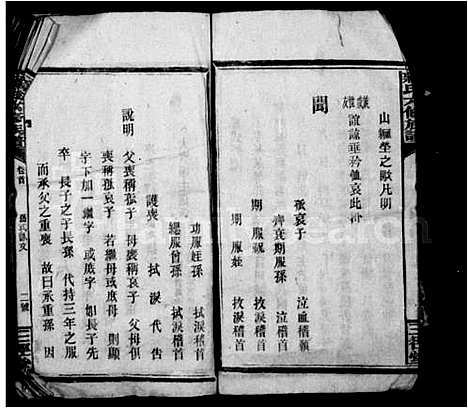 山繼塋之歐凡明
誼諒垂矜恤哀此訃
聞
孤哀子 泣血稽顙
齊衰期服孫 泣稽首
期服祝 抆淚稽首
期服姪 抆淚稽首
功服姪孫 拭淚稽首
緦服曾孫 拭淚稽首
護喪 拭淚代告
說明 父喪稱孤子 母喪稱哀子 父母俱
喪稱孤哀子 若繼母或庶母 則顯
字下加一繼字 或庶字 如長子先
卒 長子之子長孫 代持三年之服
而承父之重喪 故曰承重孫 因
卷首
二號